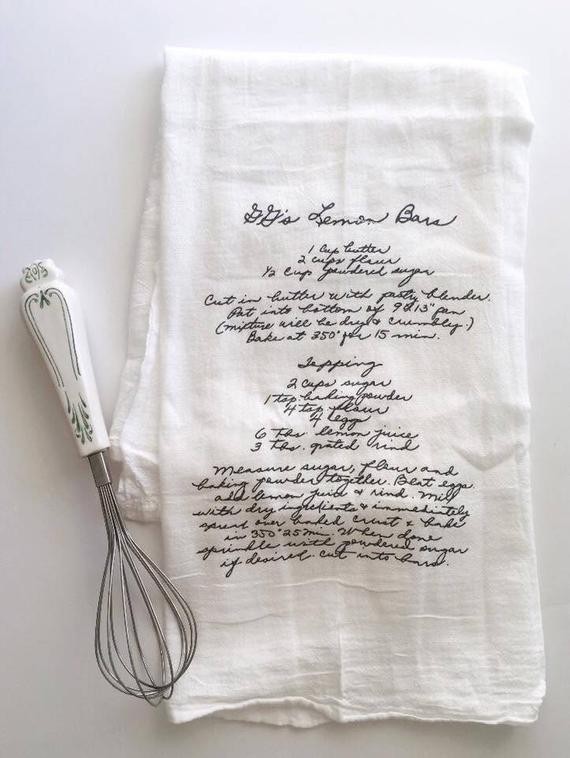 GG's Lemon Bars
1 cup butter
2 cups flour
1/2 cup powdered sugar
Cut in butter with pastry blender.
Pat into bottom of 9x13" pan
(mixture will be dry & crumbly.)
Bake at 350° for 15 min.
Topping
2 cups sugar
1 tsp. baking powder
4 tsp flour
4 eggs
6 Tbs. lemon juice
3 Tbs. grated rind
Measure sugar, flour and
baking powder together. Beat eggs.
add lemon juice & rind. Mix
with dry ingredients & immediately
spread over baked crust & bake
in 350° 25 min. When done
sprinkle with powdered sugar
if desired. cut into bars.